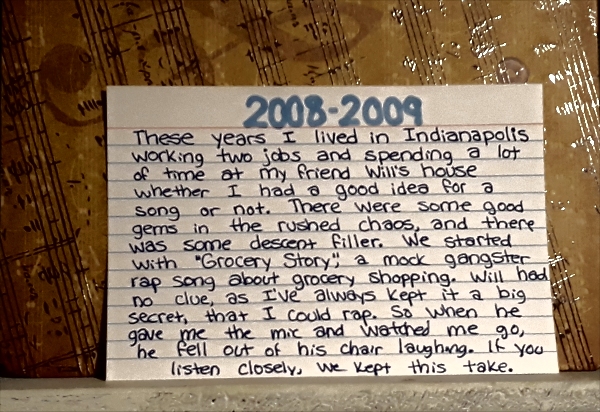 2008-2009
These years I lived in Indianapolis
working two jobs and spending a lot
of time at my friend Will's house
whether I had a good idea for a
song or not. There were some good
gems in the rushed chaos, and there
was some descent filler. We started
with "Grocery Story", a mock gangster
rap song about grocery shopping. Will had
no clue, as I've always kept it a big
secret, that I could rap. So when he
gave me the mic and watched me go,
he fell out of his chair laughing. If you
listen closely, we kept this take.